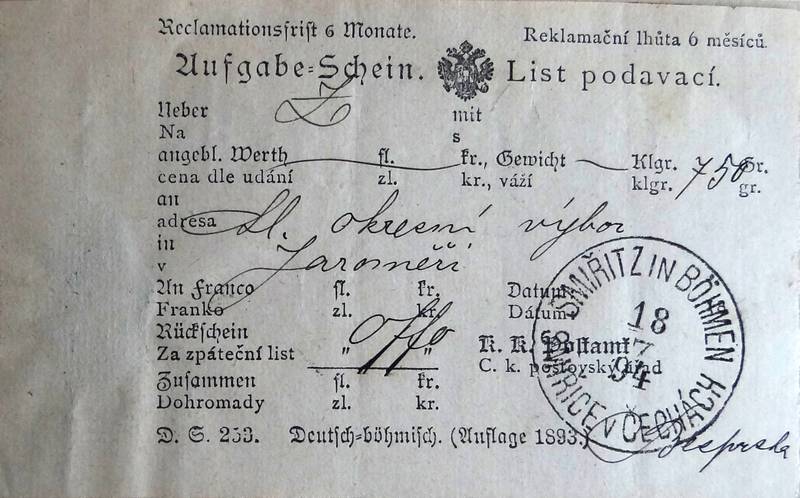 Reclamationsfrist 6 Monate. Reklamační lhůta 6 měsíců.
Aufgabe-Schein. List podavací.
Ueber Z mit
Na s
angebl. Werth fl. kr., Gewicht Klgr. 750 Gr.
cena dle udání zl. kr., váží klgr. gr.
an
adresa Sl. okresní výbor
in
v Jaroměři
An Franco fl. kr. Datum
Franko zl. kr. Dátum
Rückschein K. K. Postamt
Za zpáteční list " " C. k. poštovský úřad
Zusammen fl. kr.
Dohromady zl. kr.
D. S. 253. Deutsch-böhmisch. (Auflage 1893.)
SMIŘITZ IN BÖHMEN
18
7
94
SMIŘICE v ČECHÁCH